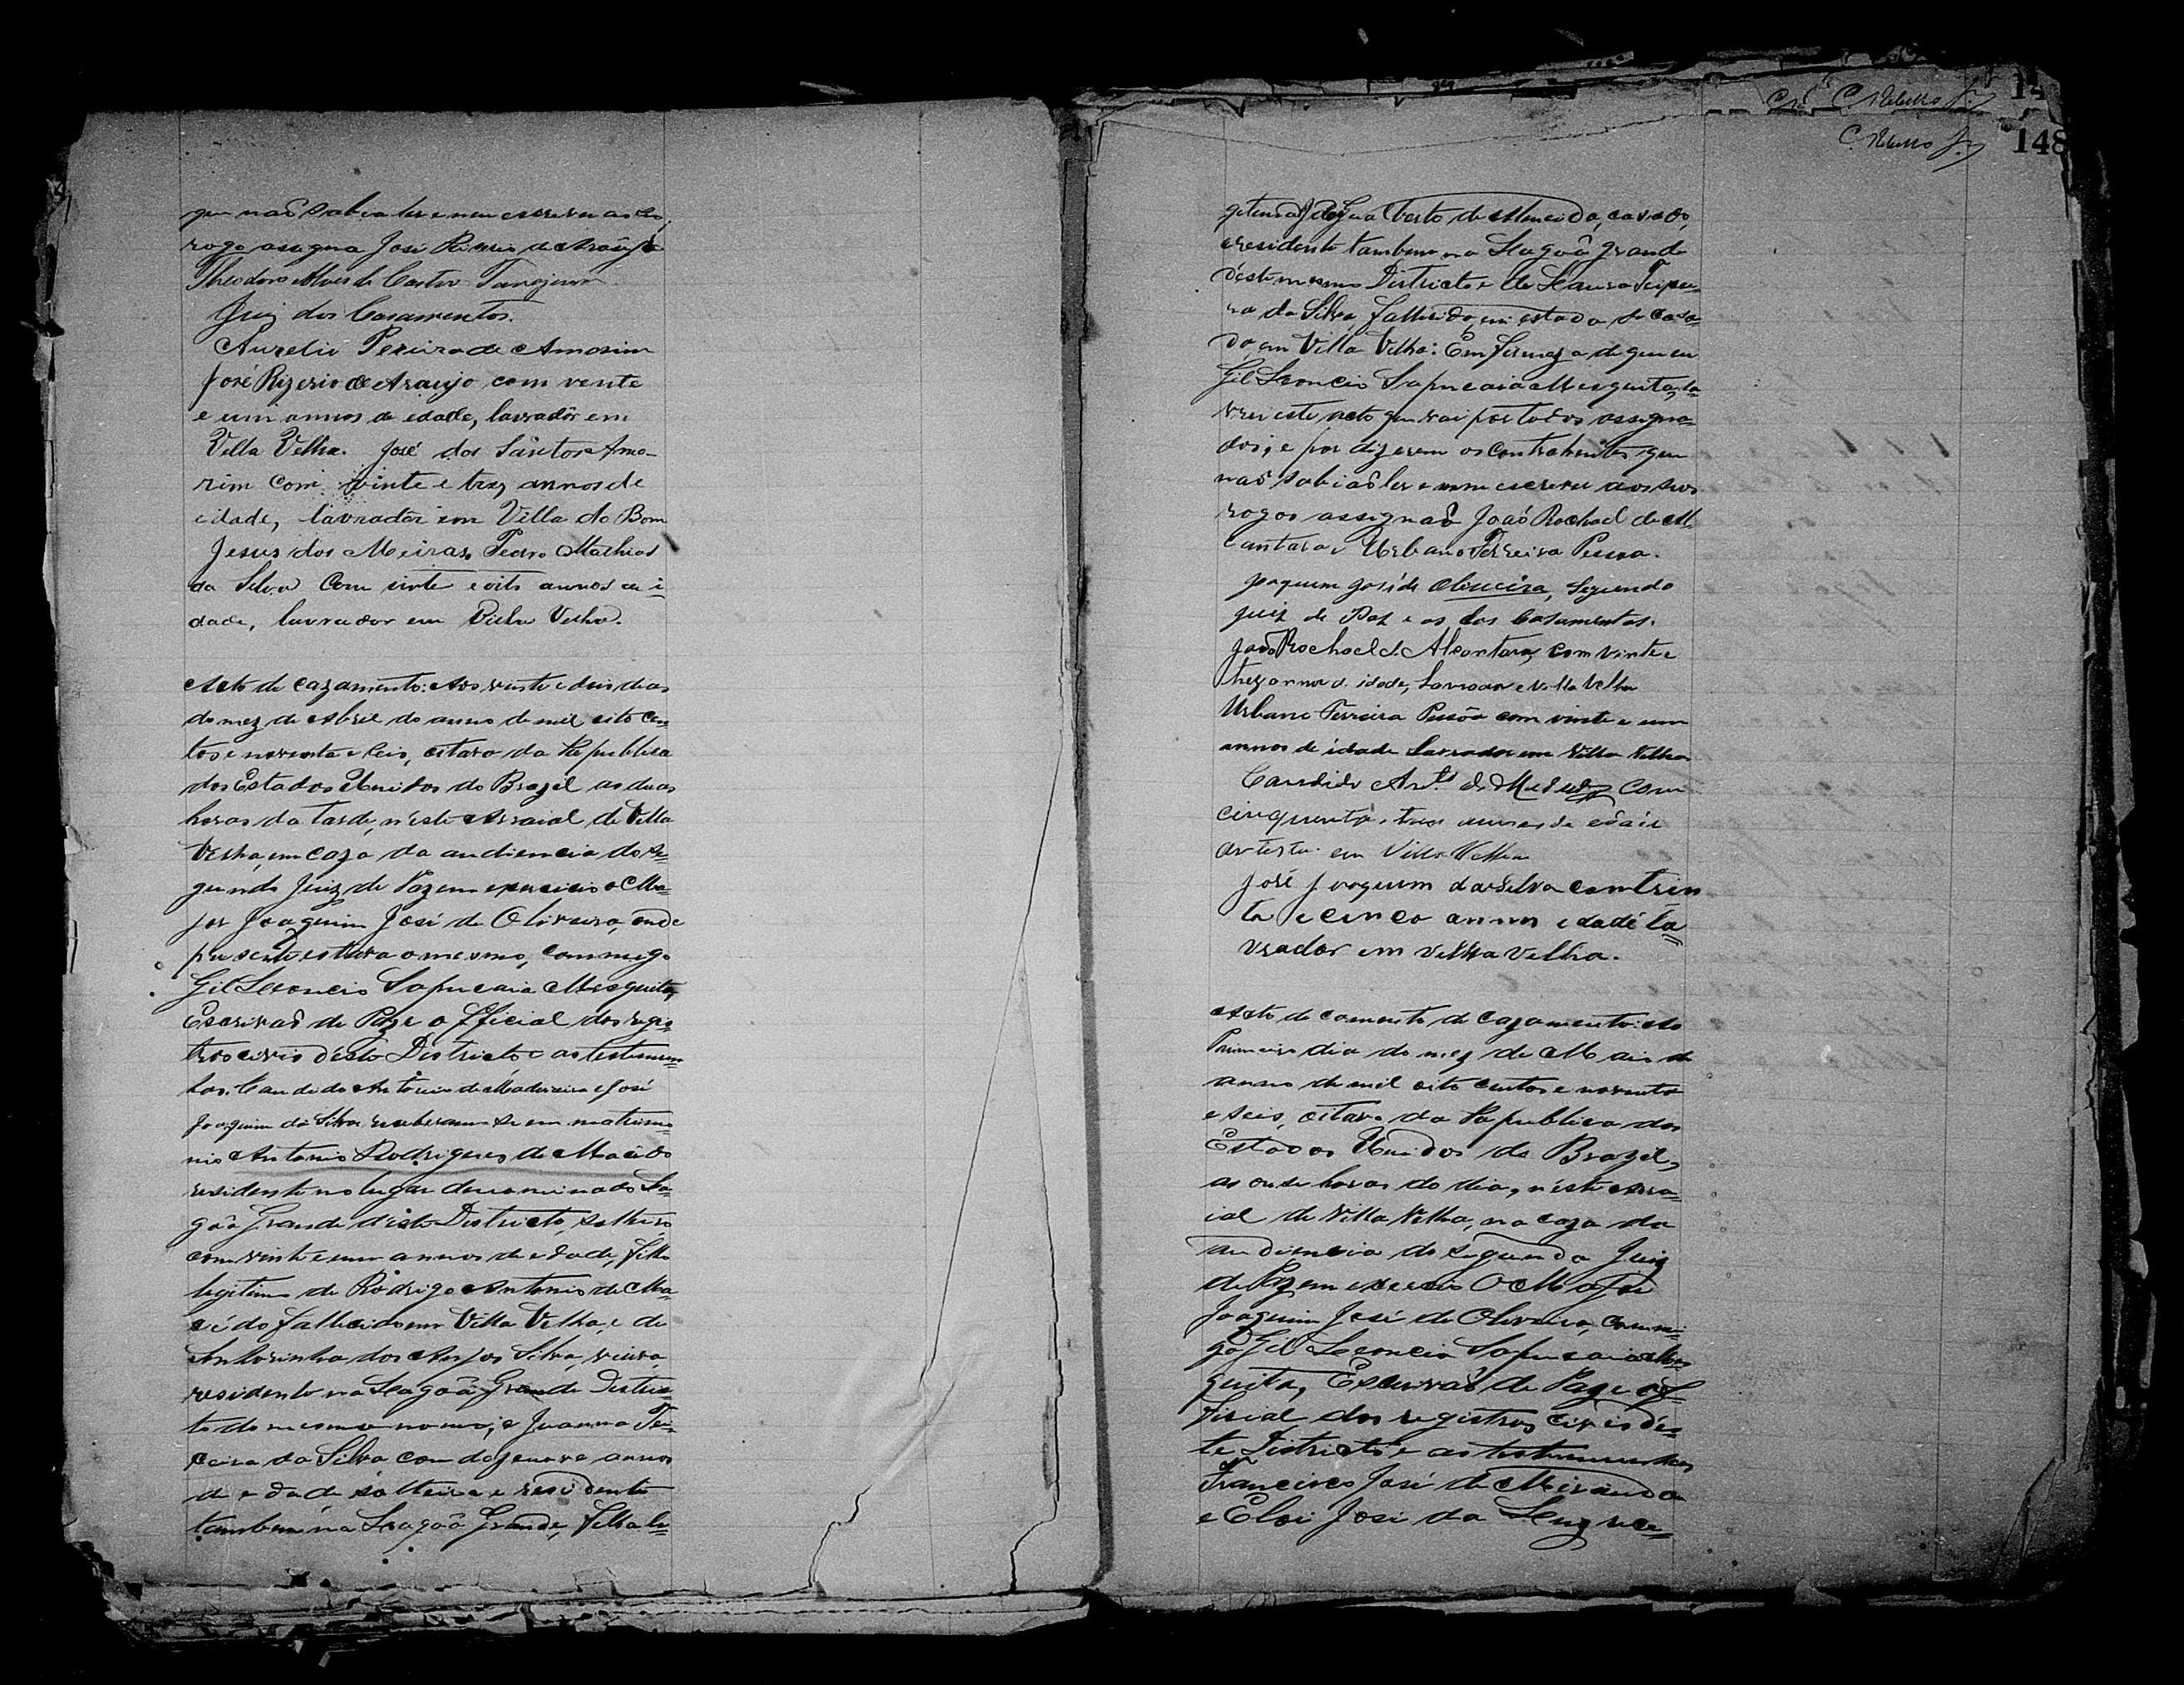 que não sabia ler e nem escrever ao seo
rogo assigna José Rizerio de Araujo
Theodoro Alves de Castro Tangerino
Juiz dos Casamentos.
Aurelio Pereira de Amorim
José Rizerio de Araujo com vente
e um annos de edade, lavradôr em
Villa Velha. José dos Santos Amo-
rim com vinte e trez annos de
edade, lavradôr em Villa do Bom
Jesus dos Meiras. Pedro Mathias
da Silva com vinte e oito annos de i=
dade, lavrador em Villa Velha.
Acto de cazamento: Aos vinte e dois dias
do mez de Abril do anno de mil oito cen-
tos e noventa e seis, oitavo da Republica
dos Estados Unidos do Brazil as duas
horas da tarde, n'este Arraial de Villa
Velha, em caza da audiencia do se=
gundo Juiz de Paz em exercicio o Ma=
jor Joaquim José de Oliveira, onde
presente estava o mesmo, commigo
Gil Leoncio Sapucaia Mesquita,
Escrivão de Paz e o fficial dos regis=
tros civis d'este Districto e as testemun
has. Candido Antonio de Madureira e José
Joaquim da Silva receberam-se em matrimo=
nio Antonio Rodrigues de Macêdo
residente no lugar denominado La=
gôa Grande d'este Districto, solteiro
com vinte e um annos de edade, filho
legitimo de Rodrigo Antonio de Ma=
cêdo fallecido em Villa Velha, e de
dos Anjos Silva, viuva,
residente na Lagôa Grande Distric=
to do mesmo nome; e Joanna Tei=
xeira da Silva com dezenove annos
de edade solteira e residente
tambem na Lagôa Grande, filha le=
de Almeida, casado,
e residente tambem na Lagôa grande
d'este mesmo Districto e de Laura Teixei=
ra da Silva, fallecida em estado de casa=
da, em Villa Velha: Em firmeza de que eu
Gil Leoncio Sapucaia Mesquita, la=
vrei este acto que vai por todos assigna=
dos; e por dizerem os contrahentes que
não sabião ler e nem escrever aos seos
rogos assignão João Rochael de Al
cantara e Urbano Ferreira Pessoa.
Joaquim José de Oliveira, Segundo
Juiz de Paz e os dos Casamentos.
João Rochael d. Alcantara, com vinte e
trez annos d. idade, Lavrador e Villa Velha
Urbano Ferreira Pessôa com vinte e um
annos de idade Lavrador em Villa Velha
Candido Ant.º de com
cinquenta e tres annos de edade
artista em Villa Velha
José Joaquim da Silva com trin
ta e cinco annos edade la=
vrador em Villa Velha.
Acto de comento de cazamento: Ao
Primeiro dia do mez de Maio do
anno de mil oito centos e noventa
e seis, oitavo da Republica dos
Estados Unidos do Brazil,
as onse horas do dia, n'este Arra=
ial de Villa Velha, na caza da
audiencia do segundo Juiz
de Paz em exercicio O Major
Joaquim José de Oliveira, commi=
go Gil Leoncio Sapucaia Mes
quita, Escrivão de Paz e o of=
ficial dos registros civis d'es=
te Districto e as testemunhas
Francisco José de Miranda
e Eloi José da Luz rece=
148